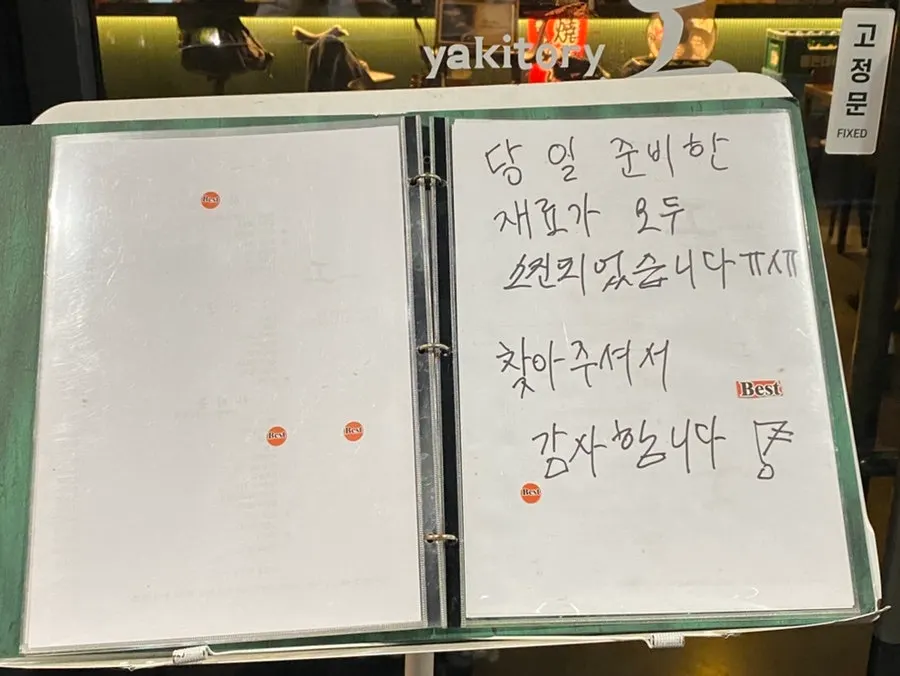 yakitory
고정문
FIXED
당일 준비한
재료가 모두
소진되었습니다 ㅠㅅㅠ
찾아주셔서
감사합니다
Best
Best
Best
Best
Best